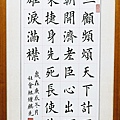 三顧頻煩天下計兩
朝開濟老臣心出師
未捷身先死長使英
雄淚滿襟